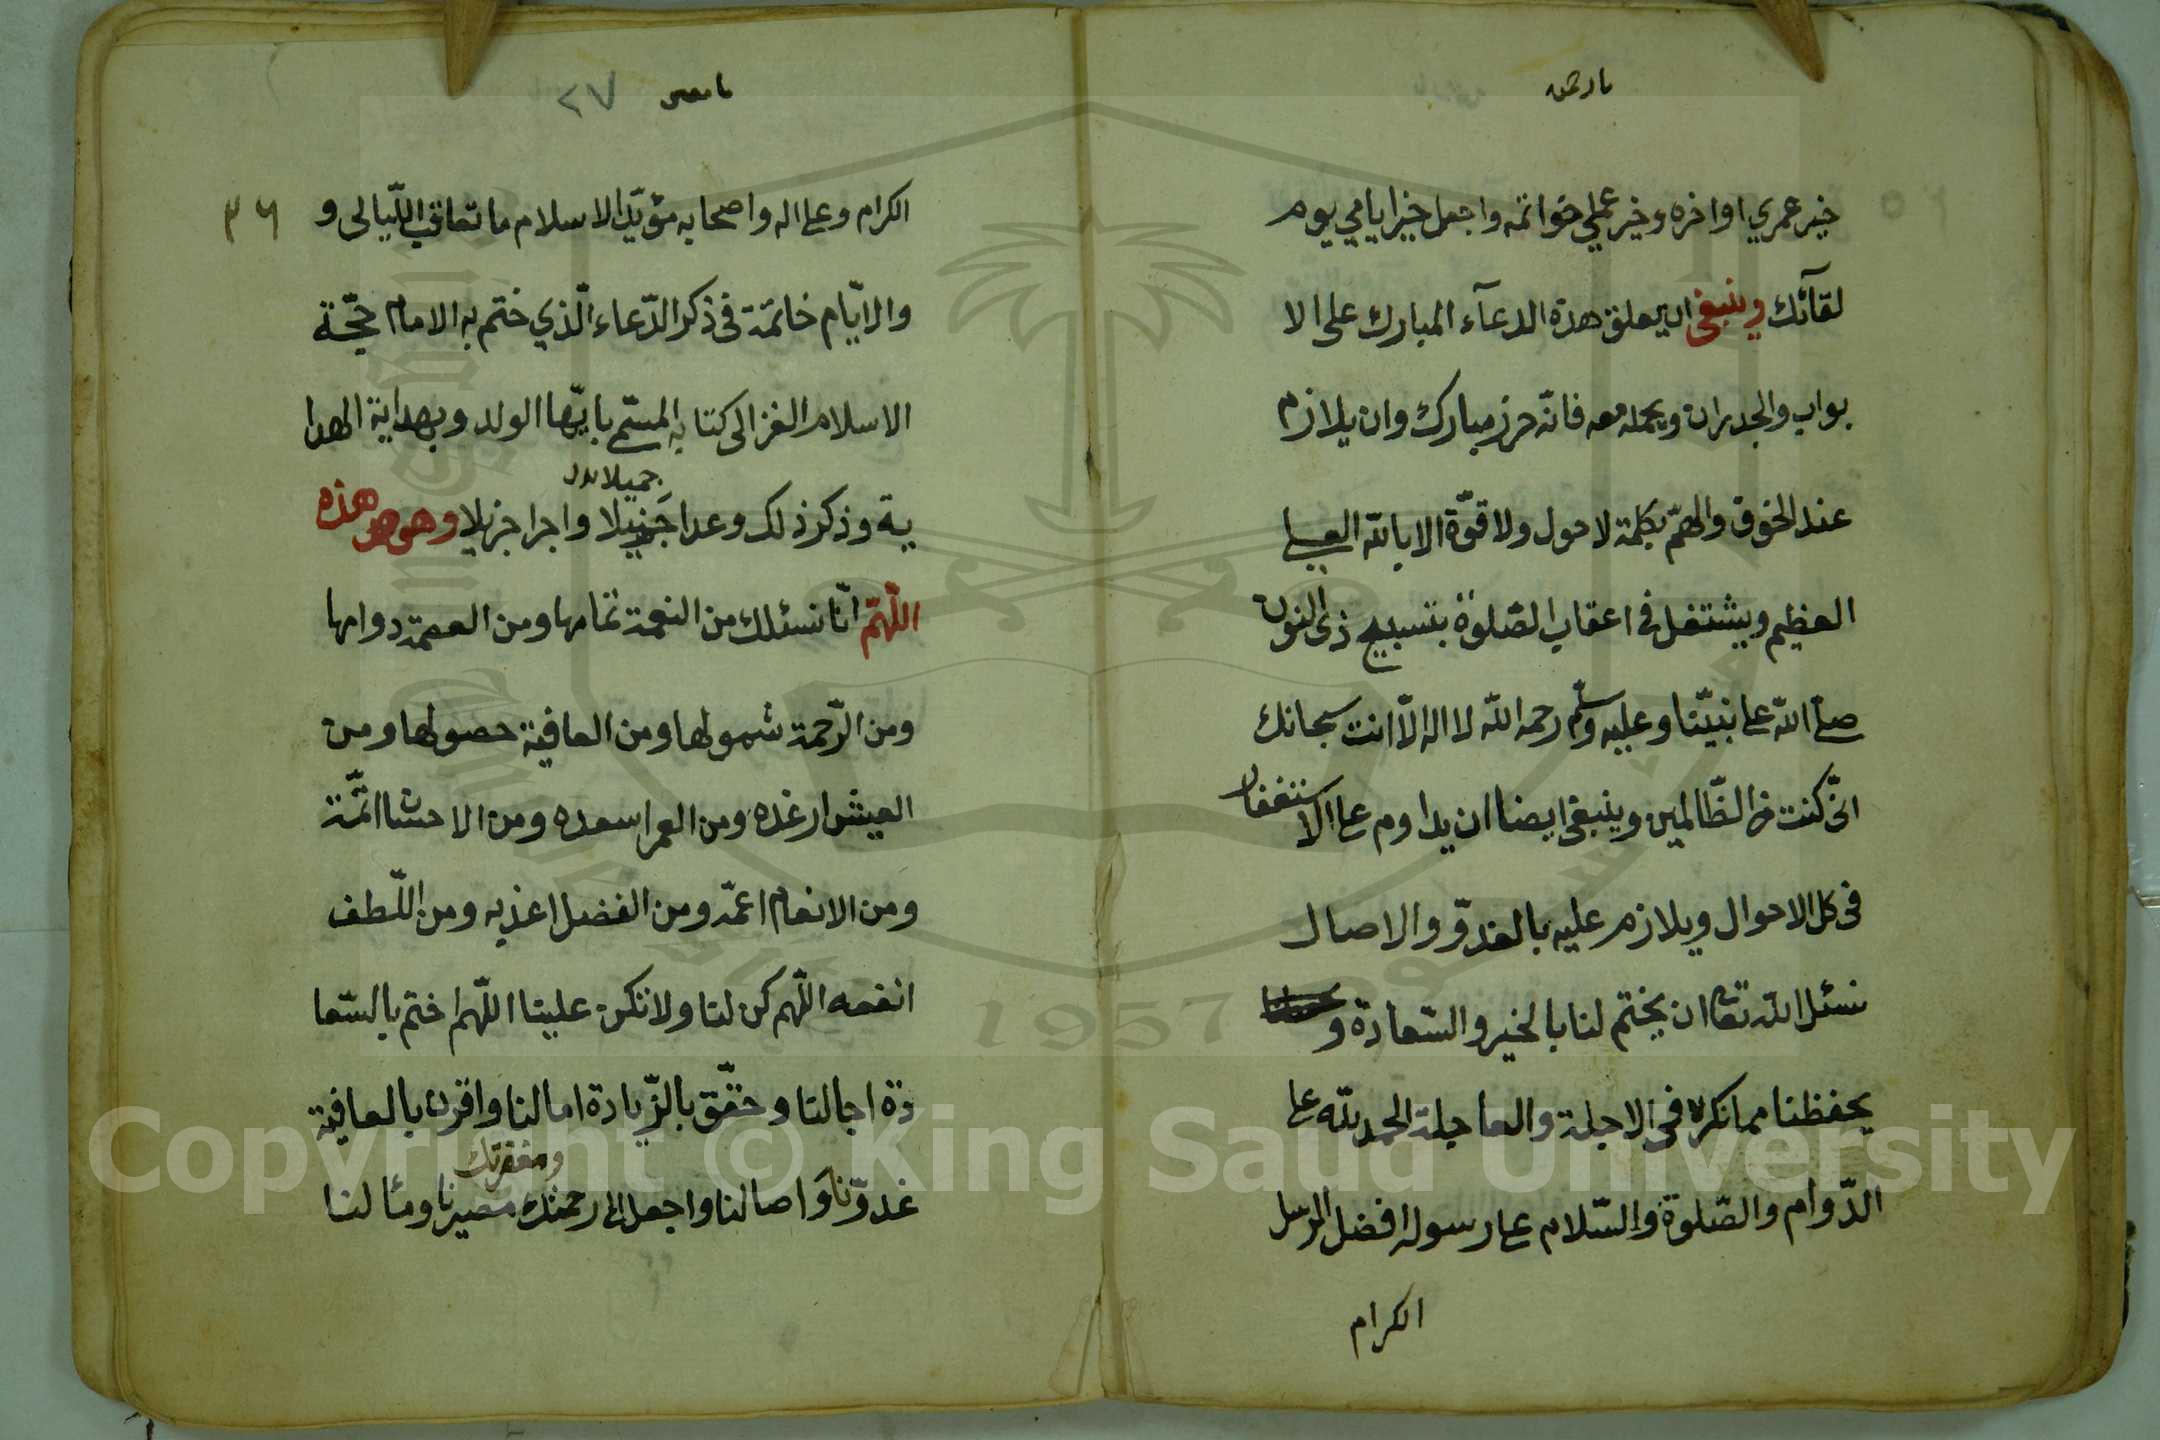 خير عمري اواخره وخير عملي خواتمه واجعل خير ايامي يوم
لقآئك وينبغى ان يعلق هذه الدعآء المبارك على الا
بواب والجدران ويحمله معه فانّه حرز مبارك وان يلازم
عند الخوف والهمّ بكلمة لا حول ولا قوّة الا بالله العلي
العظيم ويشتغل في اعقاب الصّلوة بتسبيح ذى النون
صلى الله على نبيّنا وعليه وسلّم رحمه الله لا اله الّا انت سبحانك
انّى كنت من الظّالمين وينبغى ايضا ان يداوم على الاستغفار
فى كل الاحوال ويلازم عليه بالغدوّ والاصال
نسئل الله تعا ان يختم لنا بالخير والسّعادة و
يحفظنا مما نكره فى الاجلة والعاجلة الحمد لله على
الدّوام والصّلوة والسّلام على رسوله افضل الرسل
الكرام
٢٧
٣٦
الكرام وعلى اله واصحابه مؤيّد الاسلام ما تعاقب اللّيالى و
والايّام خاتمة فى ذكر الدّعاء الّذي ختم به الامام حجّة
الاسلام الغزالى كتابه المسمّى بايّها الولد وبهداية الهدا
ية وذكر ذلك وعدا جميلا واجرا جزيلا وهو هو هذه
جميلا
اللّهمّ انّا نسئلك من النعمة تمامها ومن العصمة دوامها
ومن الرّحمة شمولها ومن العافية حصولها ومن
العيش ارغده ومن العمر اسعده ومن الاحسان اتمّة
ومن الانعام اعمّه ومن الفضل اعذبه ومن اللّطف
انفعه اللّهم كن لنا ولا تكن علينا اللّهم اختم بالسّعا
دة اجالنا وحقّق بالزّيادة امالنا واقرن بالعافية
ومغفرتك
غدوّنا واصالنا واجعل الى رحمتك مصيرنا ومئالنا
Copyright © King Saud University
1957